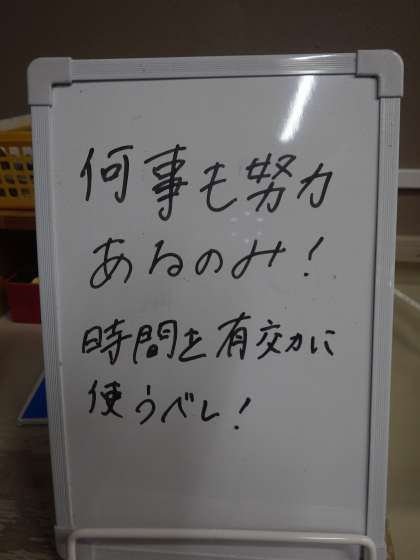 何事も努力
あるのみ!
時間を有効に
使うべし!